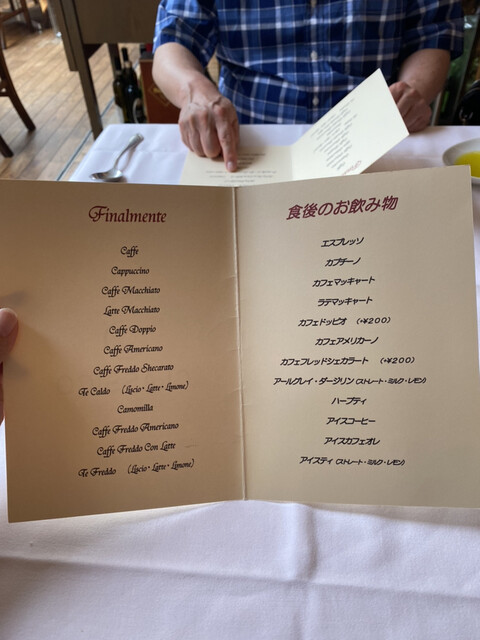 Finalmente
Caffe
Cappuccino
Caffe Macchiato
Latte Macchiato
Caffe Doppio
Caffe Americano
Caffe Freddo Shecarato
Te Caldo （Liscio・Latte・Limone）
Camomilla
Caffe Freddo Americano
Caffe Freddo Con Latte
Te Freddo （Liscio・Latte・Limone）
食後のお飲み物
エスプレッソ
カプチーノ
カフェマッキャート
ラテマッキャート
カフェドッピオ （+¥200）
カフェアメリカーノ
カフェフレッドシェカラート （+¥200）
アールグレイ・ダージリン（ストレート・ミルク・レモン）
ハーブティ
アイスコーヒー
アイスカフェオレ
アイスティ（ストレート・ミルク・レモン）